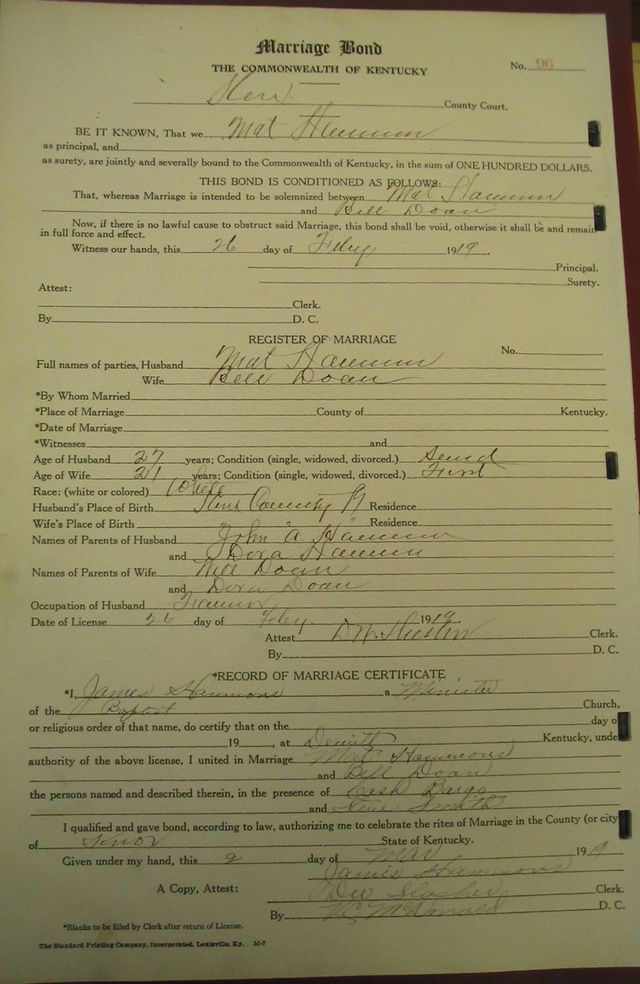 Marriage Bond
THE COMMONWEALTH OF KENTUCKY
No. 96
County Court.
BE IT KNOWN, That we Mat Hammon
as principal, and
as surety, are jointly and severally bound to the Commonwealth of Kentucky, in the sum of ONE HUNDRED DOLLARS.
THIS BOND IS CONDITIONED AS FOLLOWS:
That, whereas Marriage is intended to be solemnized between Mat Hammon
and Bell Doan
Now, if there is no lawful cause to obstruct said Marriage, this bond shall be void, otherwise it shall be and remain
in full force and effect.
Witness our hands, this 26 day of Feby 1919.
Principal.
Surety.
Attest:
Clerk.
By D. C.
REGISTER OF MARRIAGE
No.
Full names of parties, Husband Mat Hammon
Wife Bell Doan
*By Whom Married
*Place of Marriage County of Kentucky.
*Date of Marriage
*Witnesses and
Age of Husband 27 years; Condition (single, widowed, divorced.) Second
Age of Wife 21 years; Condition (single, widowed, divorced.) First
Race: (white or colored) White
Husband's Place of Birth Knox County Ky Residence
Wife's Place of Birth " Residence "
Names of Parents of Husband John A Hammon
and Dora Hammon
Names of Parents of Wife Will Doan
and Dora Doan
Occupation of Husband Farmer
Date of License 26 day of Feby 1919.
Attest Clerk.
By D. C.
*RECORD OF MARRIAGE CERTIFICATE
*I, James Hammons a Minister
of the Baptist Church,
or religious order of that name, do certify that on the day of
19 , at Dewitt Kentucky, under
authority of the above license, I united in Marriage Mat Hammons
and Bell Doan
the persons named and described therein, in the presence of Cash Bargo
and Smith
I qualified and gave bond, according to law, authorizing me to celebrate the rites of Marriage in the County (or city
of Knox State of Kentucky.
Given under my hand, this 2 day of Mar 1919
James Hammons
A Copy, Attest: DW Slusher Clerk.
By McDonald D. C.
*Blanks to be filled by Clerk after return of License.
The Standard Printing Company, Incorporated, Louisville, Ky. M-7